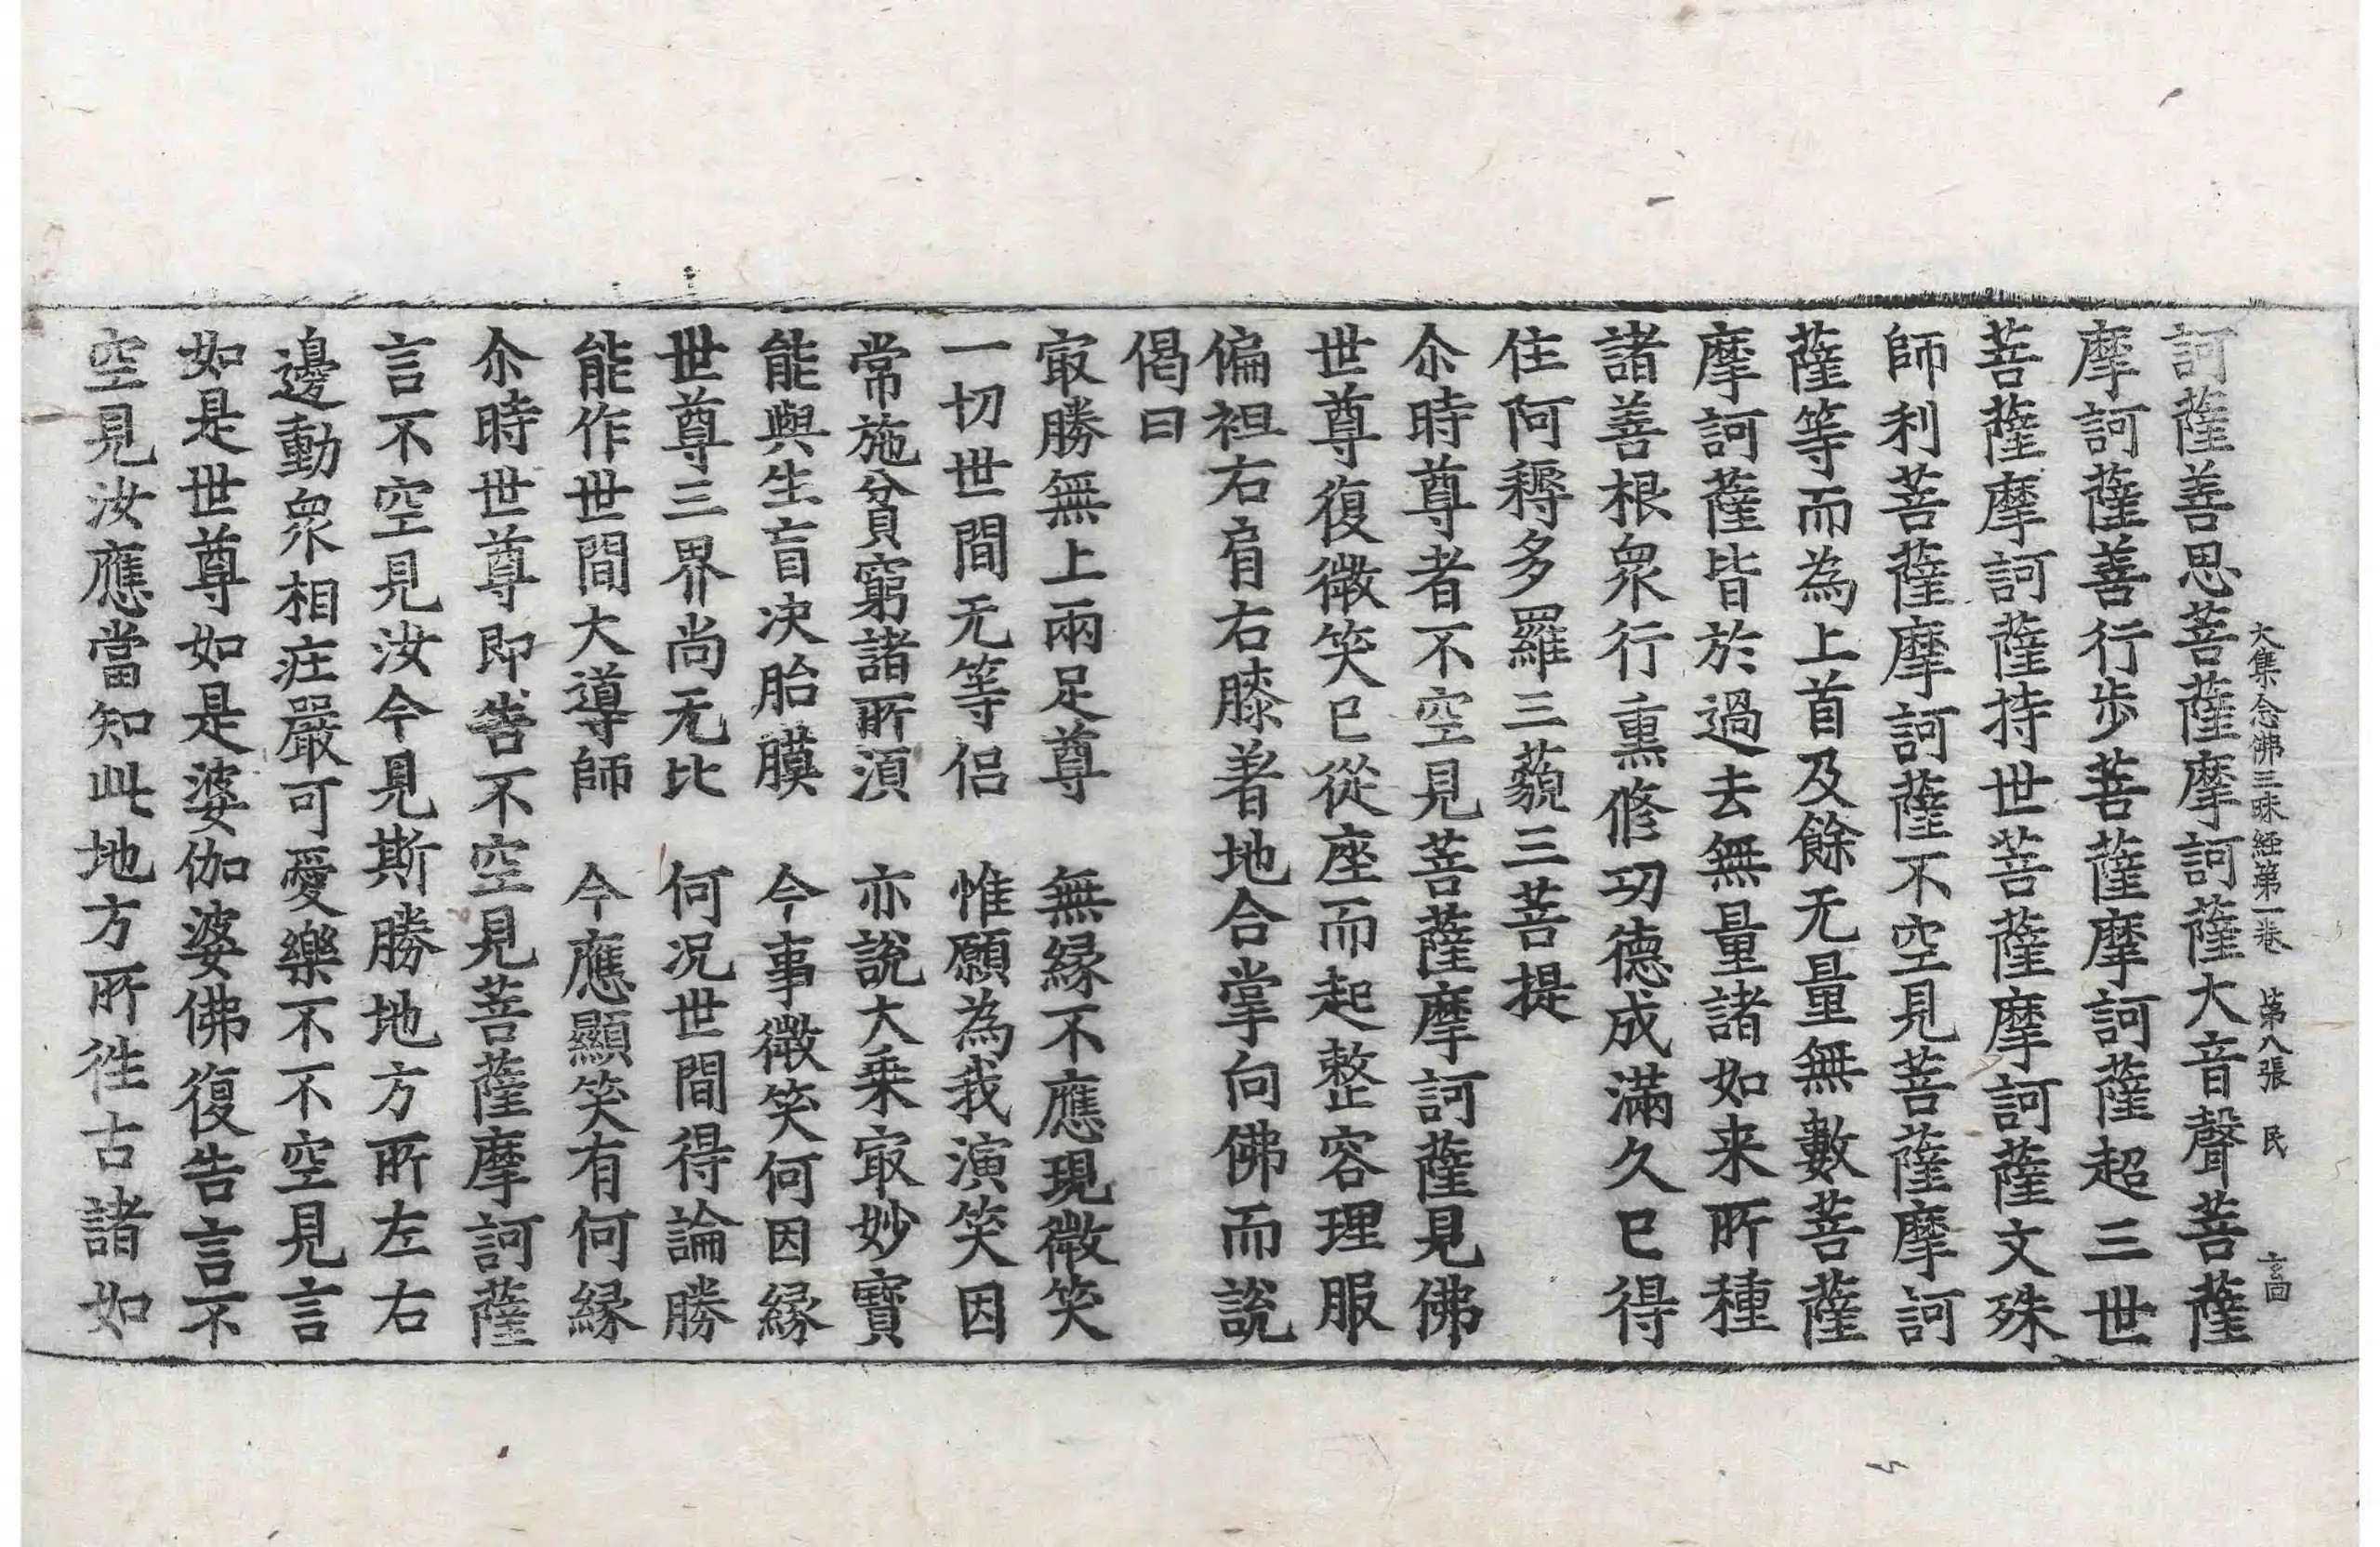 大集念佛三昧経第一巻 第八張 民
訶薩善思菩薩摩訶薩大音聲菩薩
摩訶薩善行步菩薩摩訶薩超三世
菩薩摩訶薩持世菩薩摩訶薩文殊
師利菩薩摩訶薩不空見菩薩摩訶
薩等而為上首及餘无量無數菩薩
摩訶薩皆於過去無量諸如来所種
諸善根衆行熏修功德成滿久已得
住阿耨多羅三藐三菩提
尒時尊者不空見菩薩摩訶薩見佛
世尊復微笑已從座而起整容理服
偏袒右肩右膝著地合掌向佛而說
偈曰
㝡勝無上兩足尊 無緣不應現微笑
一切世間无等侣 惟願為我演笑因
常施貧窮諸所湏 亦說大乗㝡妙寶
能與生盲决胎膜 今事微笑何因緣
世尊三界尚无比 何况世間得論勝
能作世間大導師 今應顯笑有何緣
尒時世尊即告不空見菩薩摩訶薩
言不空見汝今見斯勝地方所左右
邊動衆相庄嚴可愛樂不不空見言
如是世尊如是婆伽婆佛復告言不
空見汝應當知此地方所往古諸如